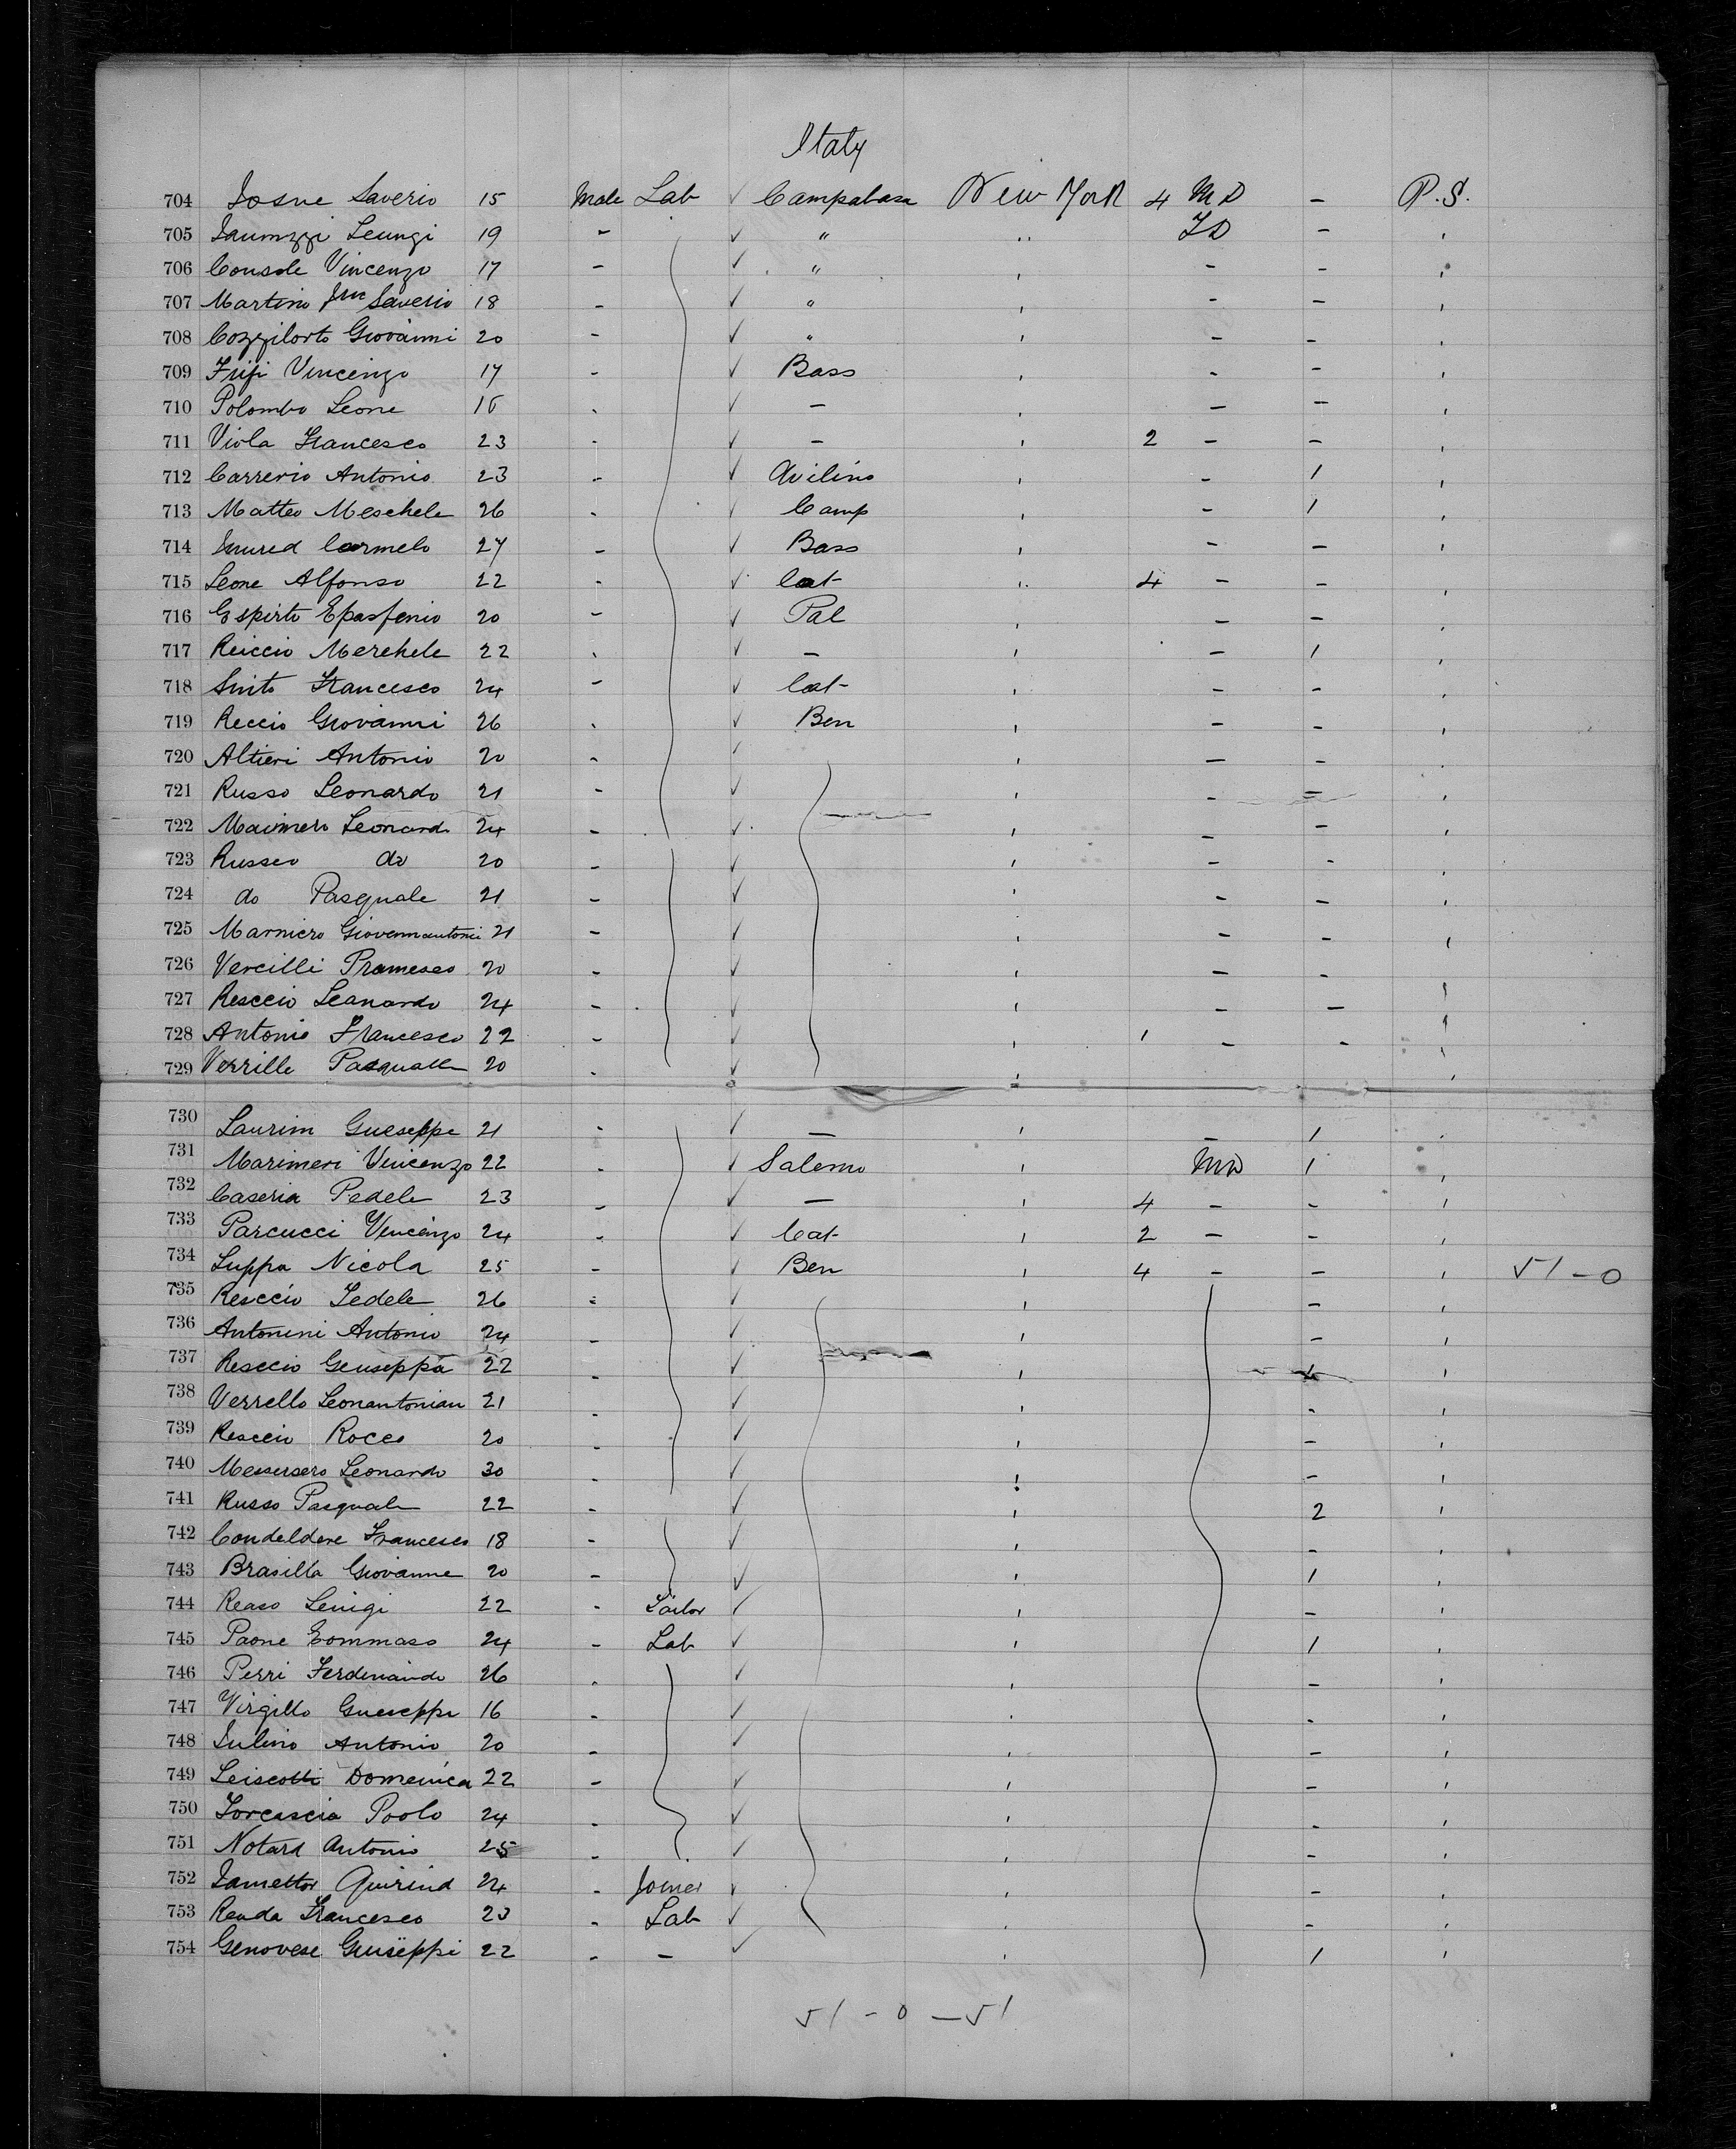 Italy
704 Josue Saverio 15 Male Lab ✓ Campabasa New York 4 MD - P.S.
705 19 - ✓ " " ZD - '
706 Console Vincenzo 17 - ✓ " ' - - '
707 Martino Saverio 18 - ✓ " ' - - '
708 Cozzilorto Giovanni 20 - ✓ " ' - - '
709 Vincenzo 17 - ✓ Bass ' - - '
710 Polombo Leone - ✓ - ' - - '
711 Viola Francesco 23 - ✓ - ' 2 - - '
712 Carrerio Antonio 23 - ✓ Avilino ' - 1 '
713 Matteo Meschele 26 - ✓ Camp ' - 1 '
714 Carmelo 27 - ✓ Bass ' - - '
715 Leone Alfonso 22 - ✓ Cat ' 4 - - '
716 Espirto Epasfenio 20 - ✓ Pal ' - - '
717 Reiccio Merchele 22 - ✓ - ' - 1 '
718 Francesco 24 - ✓ Cat ' - - '
719 Reccio Giovanni 26 - ✓ Ben ' - - '
720 Altieri Antonio 20 - ✓ ' - - '
721 Russo Leonardo 21 - ✓ ' - - '
722 Leonardo 24 - ✓ ' - - '
723 Russeo do 20 - ✓ ' - - '
724 do Pasquale 21 - ✓ ' - - '
725 Marniero Giovennantonie 21 - ✓ ' - - '
726 Vercilli 20 - ✓ ' - - '
727 Resccio Leanardo 24 - ✓ ' - - '
728 Antonio Francesco 22 - ✓ ' 1 - - '
729 Verrille Pasqualle 20 - ✓ ' '
730 Laurim Gueseppe 21 - ✓ - ' - 1 '
731 Marimeri Vincenzo 22 - ✓ Salerno ' MD 1 '
732 Caseria Pedele 23 - ✓ - ' 4 - - '
733 Parcucci Vincenzo 24 - ✓ Cat ' 2 - - '
734 Luppa Nicola 25 - ✓ Ben ' 4 - - ' 51 - 0
735 Resccio Fedele 26 - ✓ ' - '
736 Antonini Antonio 24 - ✓ ' - '
737 Resccio Geuseppa 22 - ✓ ' '
738 Verrello Leonantonian 21 - ✓ ' - '
739 Resccio Rocco 20 - ✓ ' - '
740 Messersero Leonardo 30 - ✓ ' - '
741 Russo Pasquale 22 - ✓ ' 2 '
742 Condeldere Francesco 18 - ✓ ' - '
743 Brasilla Giovanne 20 - ✓ ' 1 '
744 Reaso Leuigi 22 - Tailor ✓ ' - '
745 Paone Tommaso 24 - Lab ✓ ' 1 '
746 Perri Ferdenando 26 - ✓ ' - '
747 Virgillo Gueseppe 16 - ✓ ' - '
748 Antonio 20 - ✓ ' - '
749 Leiscotti Domenica 22 - ✓ ' - '
750 Torcascia Poolo 24 - ✓ ' - '
751 Notard Antonio 25 - ✓ ' - '
752 Quirind 24 - Joiner ✓ ' - '
753 Renda Francesco 23 - Lab ✓ ' - '
754 Genovese Guiseppi 22 - - ✓ ' 1 '
51 - 0 - 51